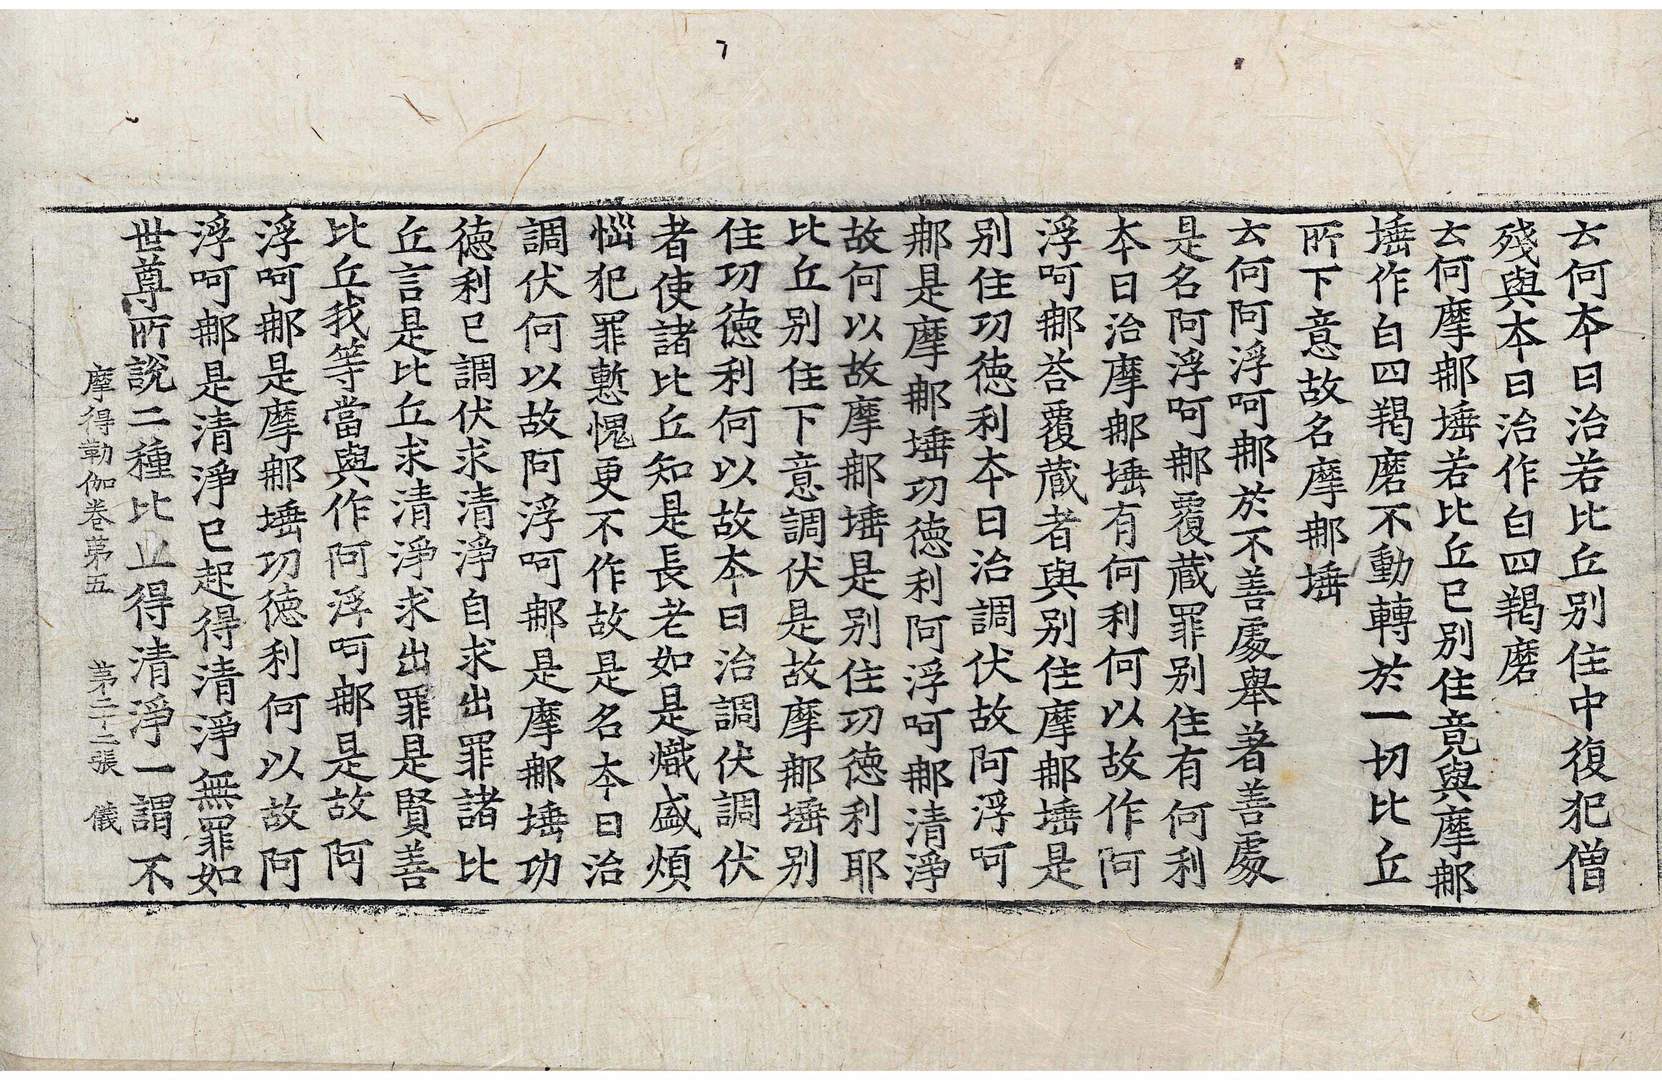 云何夲日治若比丘別住中復犯僧
殘與夲日治作白四羯磨
云何摩郍埵若比丘已別住竟與摩郍
埵作白四羯磨不動轉於一切比丘
所下意故名摩郍埵
云何阿浮呵郍於不善處舉著善處
是名阿浮呵郍覆藏罪別住有何利
夲日治摩郍埵有何利何以故作阿
浮呵郍荅覆藏者與別住摩郍埵是
別住功德利夲日治調伏故阿浮呵
郍是摩郍埵功德利阿浮呵郍清淨
故何以故摩郍埵是別住功德利耶
比丘別住下意調伏是故摩郍埵別
住功德利何以故夲日治調伏調伏
者使諸比丘知是長老如是熾盛煩
惱犯罪慙愧更不作故是名夲日治
調伏何以故阿浮呵郍是摩郍埵功
德利已調伏求清淨自求出罪諸比
丘言是比丘求清淨求出罪是賢善
比丘我等當與作阿浮呵郍是故阿
浮呵郍是摩郍埵功德利何以故阿
浮呵郍是清淨已起得清淨無罪如
世尊所說二種比丘得清淨一謂不
摩得勒伽卷苐五 苐二十二張 儀